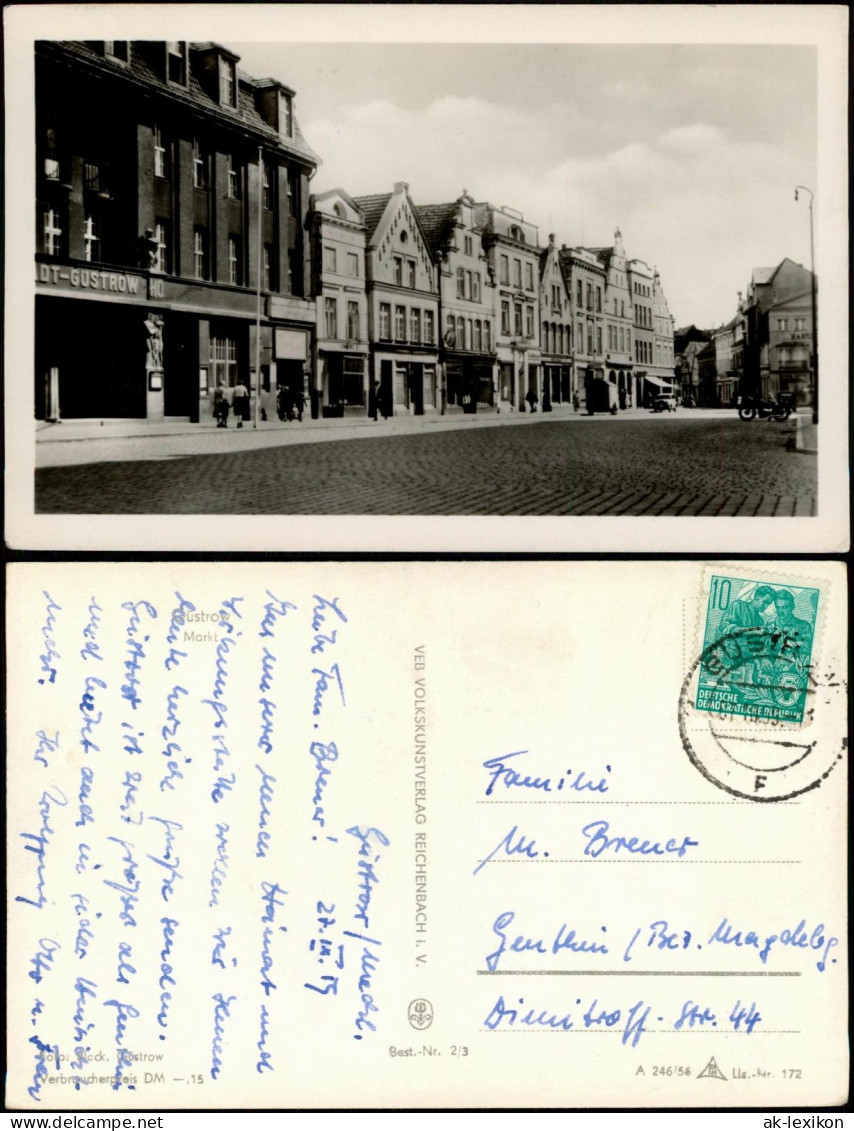 DT-GÜSTROW HO
Güstrow
Markt
Güstrow/Meckl.
27.III.59
Liebe Fam. Brener!
Aus unserer neuen Heimat und
Wirkungsstätte wollen wir Ihnen
heute herzliche Grüße senden.
Güstrow ist zwar größer als Genthin
und bietet auch in jeder Hinsicht
mehr. Ihr Otto u. Frau
Foto: Block, Güstrow
Verbraucherpreis DM —,15
VEB VOLKSKUNSTVERLAG REICHENBACH i. V.
Best.-Nr. 2/3
10
DEUTSCHE
DEMOKRATISCHE REPUBLIK
GÜSTROW
F
Familie
M. Brener
Genthin / Bez. Magdebg.
Dimitroff-Str. 44
A 246/56 Lis.-Nr. 172
www.delcampe.net
ak-lexikon